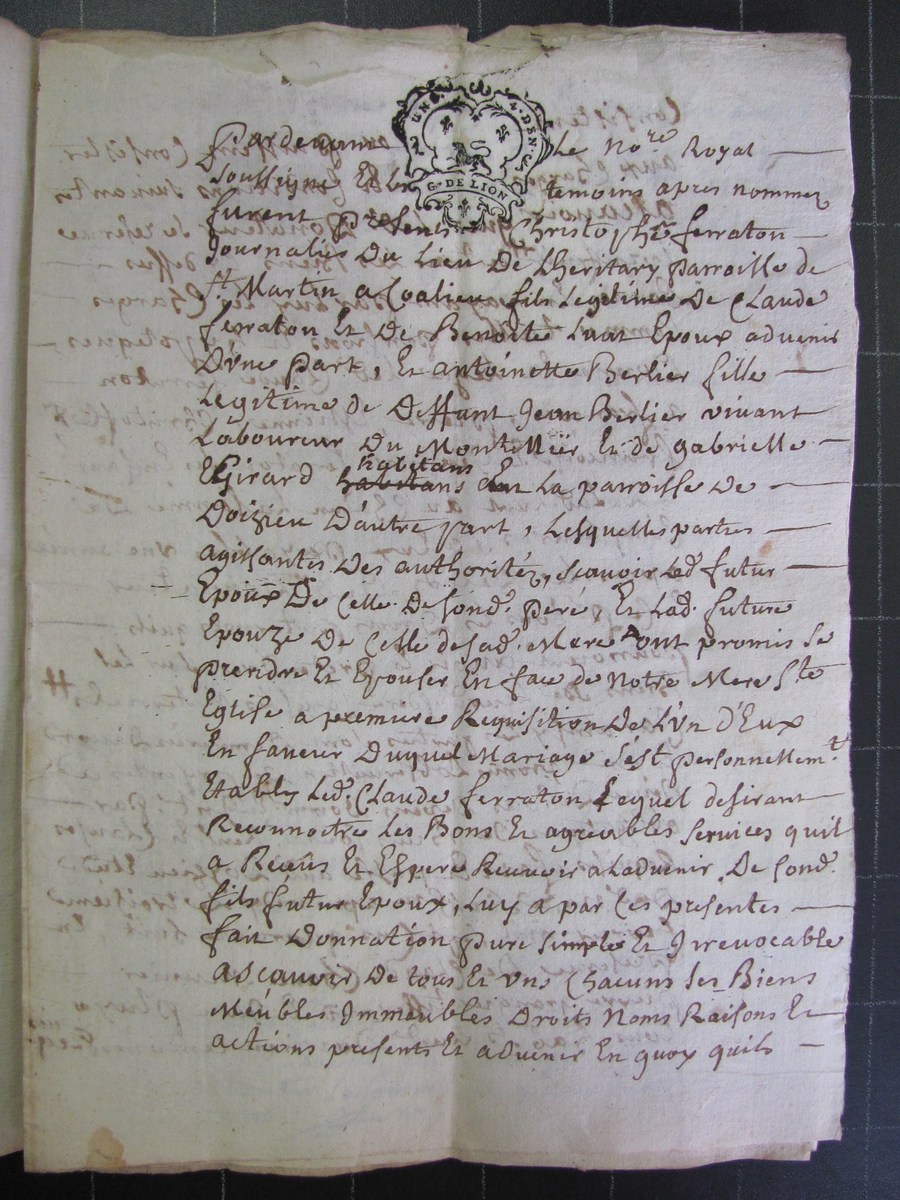 UN S. 4. DEN. G. DE LION
Pardevant Le No.re Royal
soussigné Et les temoins apres nommez
furent Presents Christophe ferraton
Journalier Du Lieu De Lheritary parroisse de
St. Martin a Coalieu fils Legitime De Claude
ferraton Et De Benoite Luat Epoux advenir
D'une part, Et antoinette Berlier fille
Legitime de Deffunt Jean Berlier vivant
Laboureur Du Et de gabrielle
Girard habitans habitans En La parroisse De
Doizieu D'autre part, Lesquelles parties
agissantes Des authorités, scavoir Led. futur
Epoux De Celle De sond. peré Et Lad. future
Epouze De Celle de sad. Mere ont promis se
prendre Et Epouser En face de Notre Mere Ste
Eglise a premiere Requisition De L'un D'Eux
En faveur Duquel Mariage s'est personnellem.t
Etably Led. Claude ferraton Lequel desirant
Reconnoitre Les Bons Et agreables services quil
a Receus Et Espere Recevoir a Ladvenir De sond.
fils futur Epoux, Luy a par Ces presentes
fait Donnation pure simple Et Irrevocable
ascavoir De tous Et uns Chacuns ses Biens
Meubles Immeubles Droits Noms Raisons Et
actions presents Et advenir En quox quils